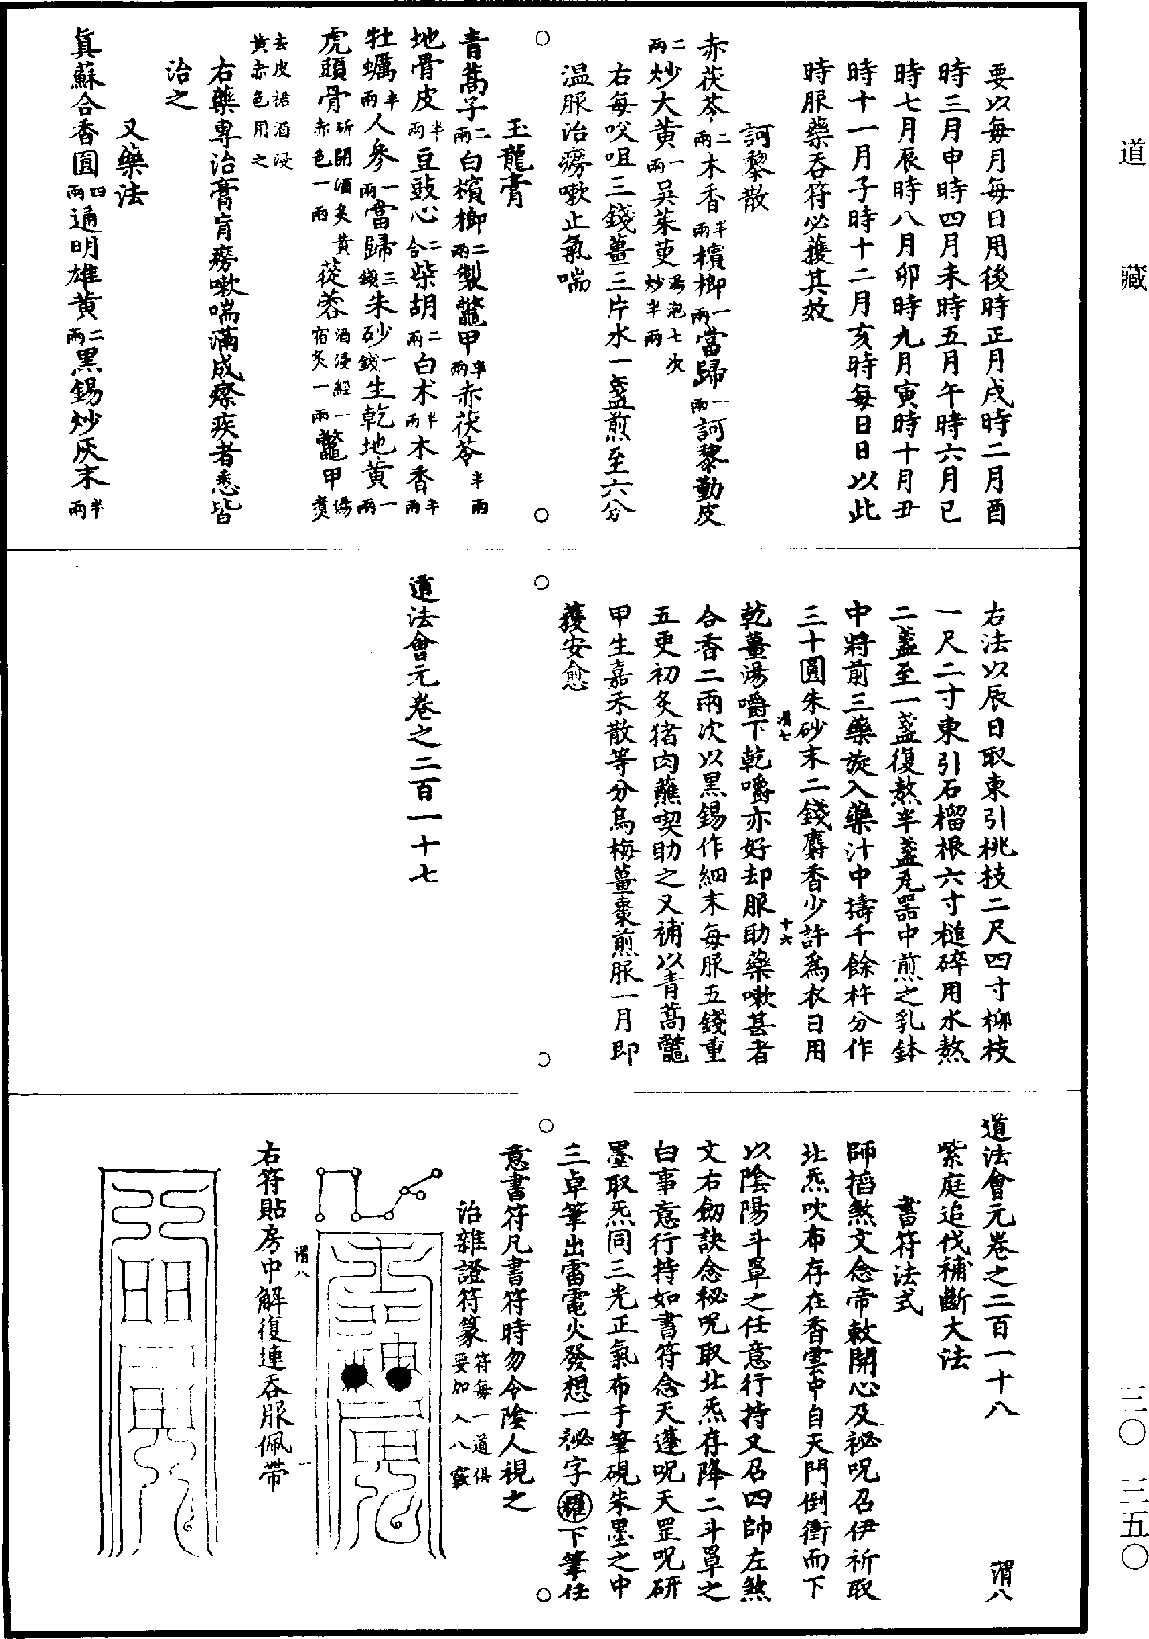 道藏
三〇 三五〇
要以每月每日用後時正月戌時二月酉
時三月申時四月未時五月午時六月巳
時七月辰時八月卯時九月寅時十月丑
時十一月子時十二月亥時每日日以此
時服藥吞符必獲其效
訶黎散
赤茯苓二兩木香半兩檳榔一兩當歸一兩訶黎勒皮
二兩炒大黃一兩吳茱萸湯泡七次炒半兩
右每㕮咀三錢薑三片水一盞煎至六分
溫服治癆嗽止氣喘
玉龍膏
青蒿子二兩白檳榔二兩製鼈甲半兩赤茯苓半兩
地骨皮半兩豆豉心二合柴胡二兩白术半兩木香半兩
牡蠣半兩人參一兩當歸三錢朱砂一錢生乾地黃一兩
虎頭骨斫開酒炙黃赤色一兩蓯蓉酒浸經一宿炙一兩鼈甲湯煑
去皮裙酒浸黃赤色用之
右藥專治膏肓癆嗽喘滿成瘵疾者悉皆
治之
又藥法
眞蘇合香圓四兩通明雄黃二兩黑錫炒灰末半兩
右法以辰日取東引桃枝二尺四寸柳枝
一尺二寸東引石榴根六寸槌碎用水熬
二盞至一盞復熬半盞瓦器中煎之乳鉢
中將前三藥旋入藥汁中擣千餘杵分作
三十圓朱砂末二錢麝香少許爲衣日用
渭七
十六
乾薑湯嚼下乾嚼亦好却服助藥嗽甚者
合香二兩次以黑錫作細末每服五錢重
五更初炙猪肉蘸喫助之又補以青蒿鼈
甲生嘉禾散等分烏梅薑棗煎服一月即
獲安愈
道法會元卷之二百一十七
道法會元卷之二百一十八
渭八
紫庭追伐補斷大法
書符法式
師掐煞文念帝敕開心及祕呪召伊祈取
北炁吹布存在香雲中自天門倒衝而下
以陰陽斗罩之任意行持又召四帥左煞
文右劒訣念秘呪取北炁存降二斗罩之
白事意行持如書符念天蓬呪天罡呪研
墨取炁同三光正氣布于筆硯朱墨之中
三卓筆出雷電火發想一祕字下筆任
意書符凡書符時勿令陰人視之
治雜證符篆符每一道俱要如入八竅
渭八
一
右符貼房中解復連吞服佩帶